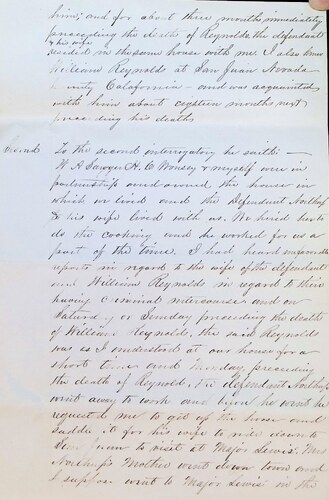 him; and for about three months immediately
preceding the death of Reynolds the defendant
& his wife
resided in the same house with me. I also knew
William Reynolds at San Juan Nevada
County Calafornia – and was acquainted
with him about eigteen months next
preceding his death
Second To the second interrogatory he saith: –
W A Sawyer H. C and myself were in
partnership and owned the house in
which we lived and the Defendant
& his wife lived with us. We hired her to
do the cooking and he worked for us a
part of the time. I had heard unfavorable
reports in regard to the wife of the defendant
and William Reynolds in regard to their
having Criminal intercourse and on
Saturday or Sunday preceding the death
of William Reynolds, the said Reynolds
was as I understood at our house for a
short time and Monday preceding
the death of Reynolds, the defendant
went away to work and when he went he
requested me to get up the horse and
saddle it for his wife to ride down to
San Juan to visit at Major Lewis'. Mrs
Mother went down town and
I suppose went to Major Lewis' in the